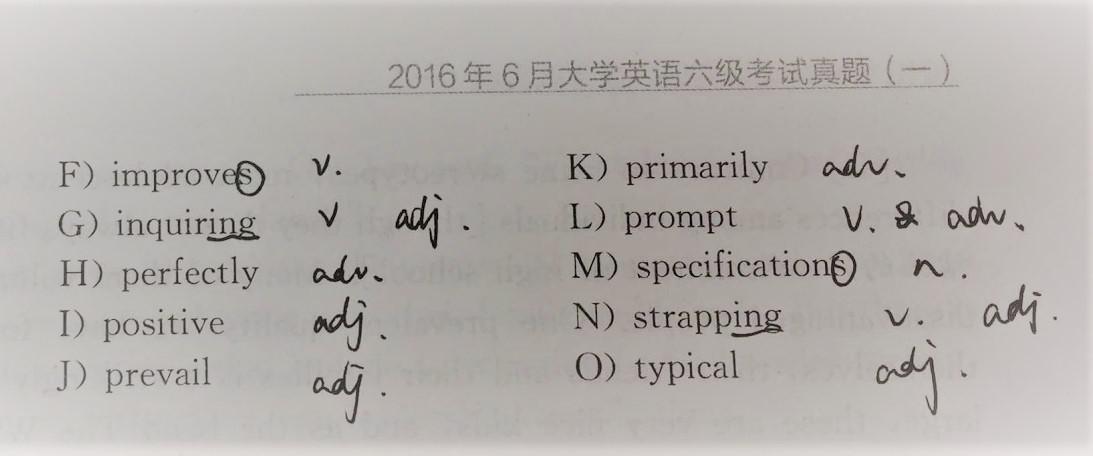 2016年6月大学英语六级考试真题（一）
F) improves v.
G) inquiring v adj.
H) perfectly adv.
I) positive adj.
J) prevail adj.
K) primarily adv.
L) prompt v. & adv.
M) specifications n.
N) strapping v. adj.
O) typical adj.